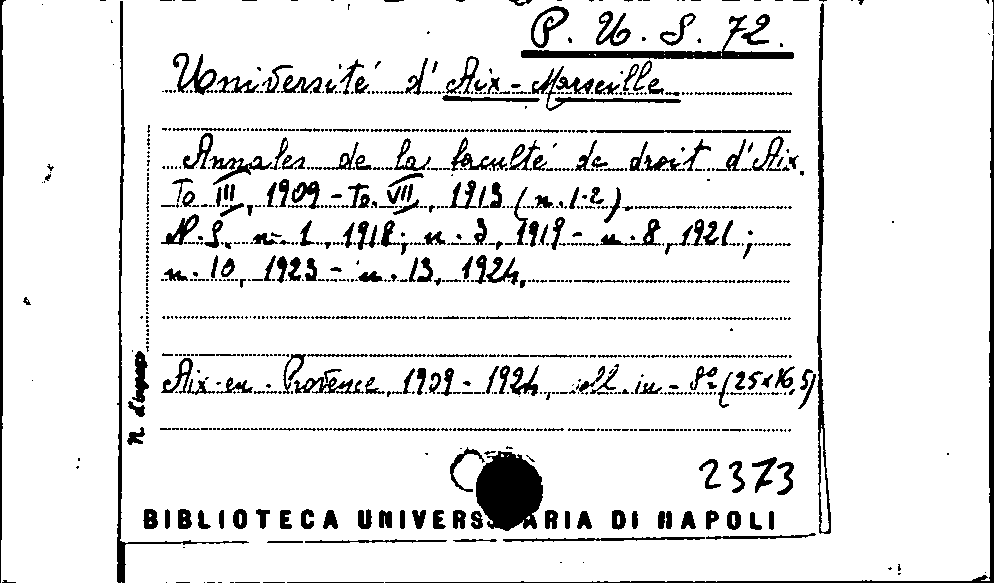 P. U. S. 72.
Université d'Aix-Marseille.
Annales de la faculté de droit d'Aix.
To III, 1909 - To. VII, 1913 (n. 1-2).
N.S. n. 1, 1918; n. 3, 1919 - n. 8, 1921;
n. 10, 1923 - n. 13, 1924.
Aix-en-Provence, 1909-1924, voll. in-8º (25x16,5)
N. d'ingresso
2373
BIBLIOTECA UNIVERSITARIA DI NAPOLI